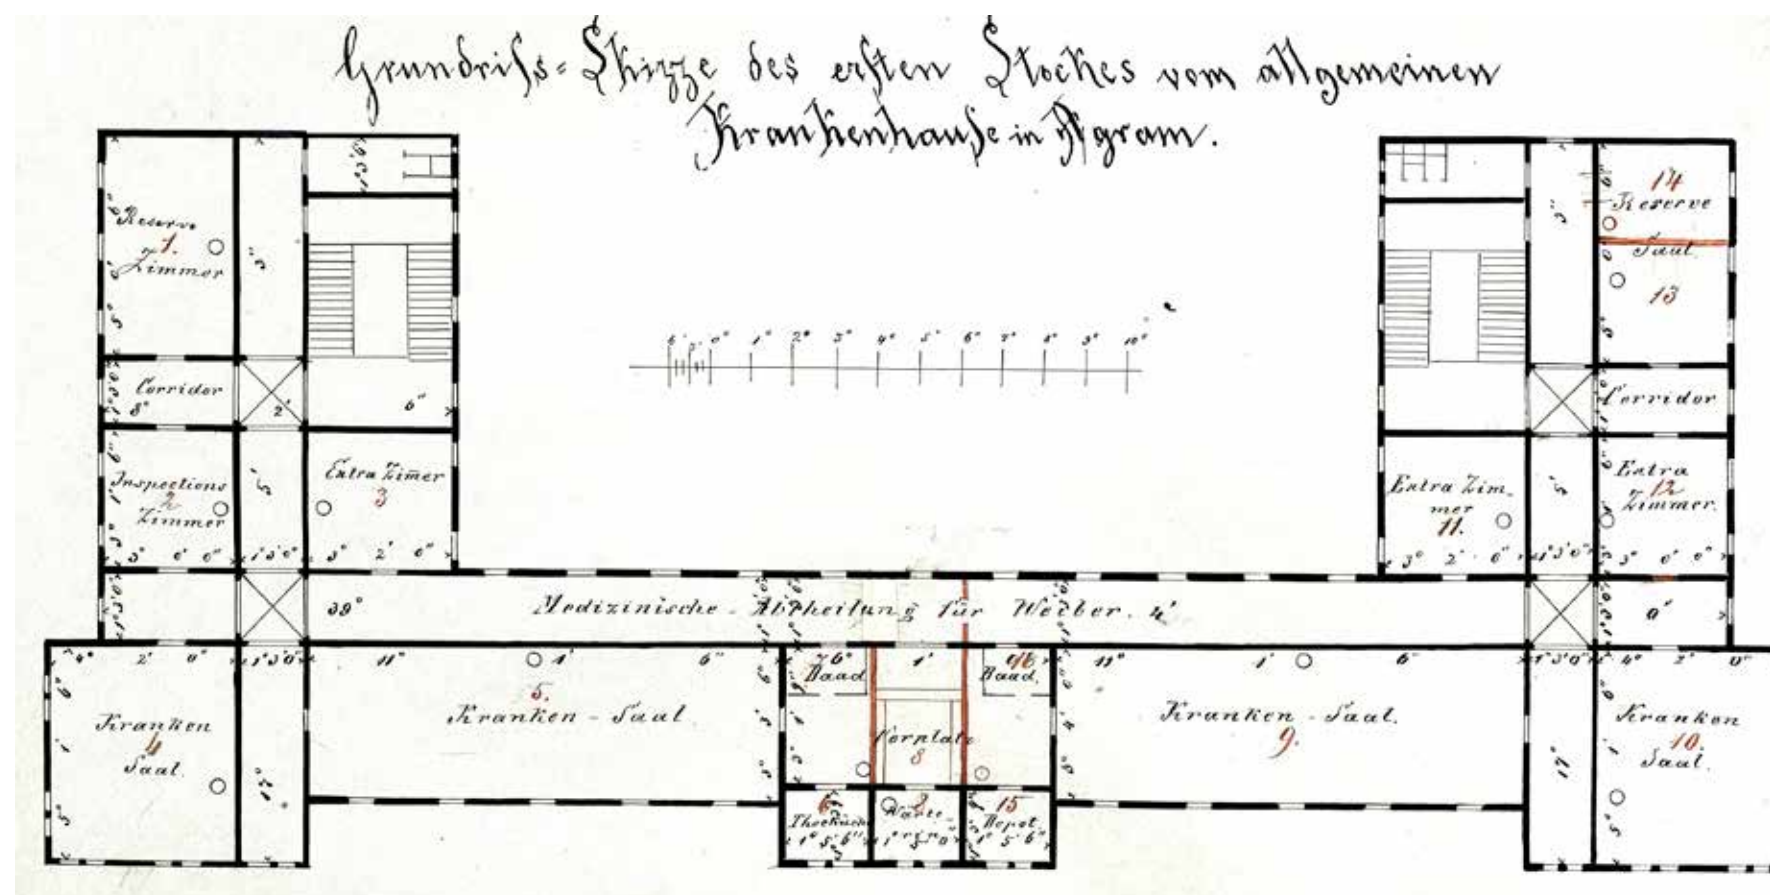 Grundriſs-Skizze des erſten Stockes vom allgemeinen
Krankenhauſe in Agram.
Reserve
1.
Zimmer
Corridor
8°
2'
6"
Inspections
2
Zimmer
Extra Zim̄er
3
3° 0' 0"
1° 3' 0"
3° 2' 6"
6' 0° 1° 2° 3° 4° 5° 6° 7° 8° 9° 10°
14
Reserve
Saal
13
Corridor
Extra Zim-
mer
11.
Extra
12
Zimmer.
3° 2' 6"
1° 3' 0"
3° 0' 0"
39°
Medizinische-Abtheilung für Weiber. 4'
0"
4° 2' 0"
1° 3' 0"
11° 1' 6"
Kranken
4
Saal.
5.
Kranken-Saal
7
Baad
1'
16
Baad.
Vorplatz
8
11° 1' 6"
1° 3' 0"
4° 2' 0"
Kranken-Saal.
9.
Kranken
10.
Saal.
6
Theeküche
1° 5' 6"
2
15
Depot.
1° 5' 6"